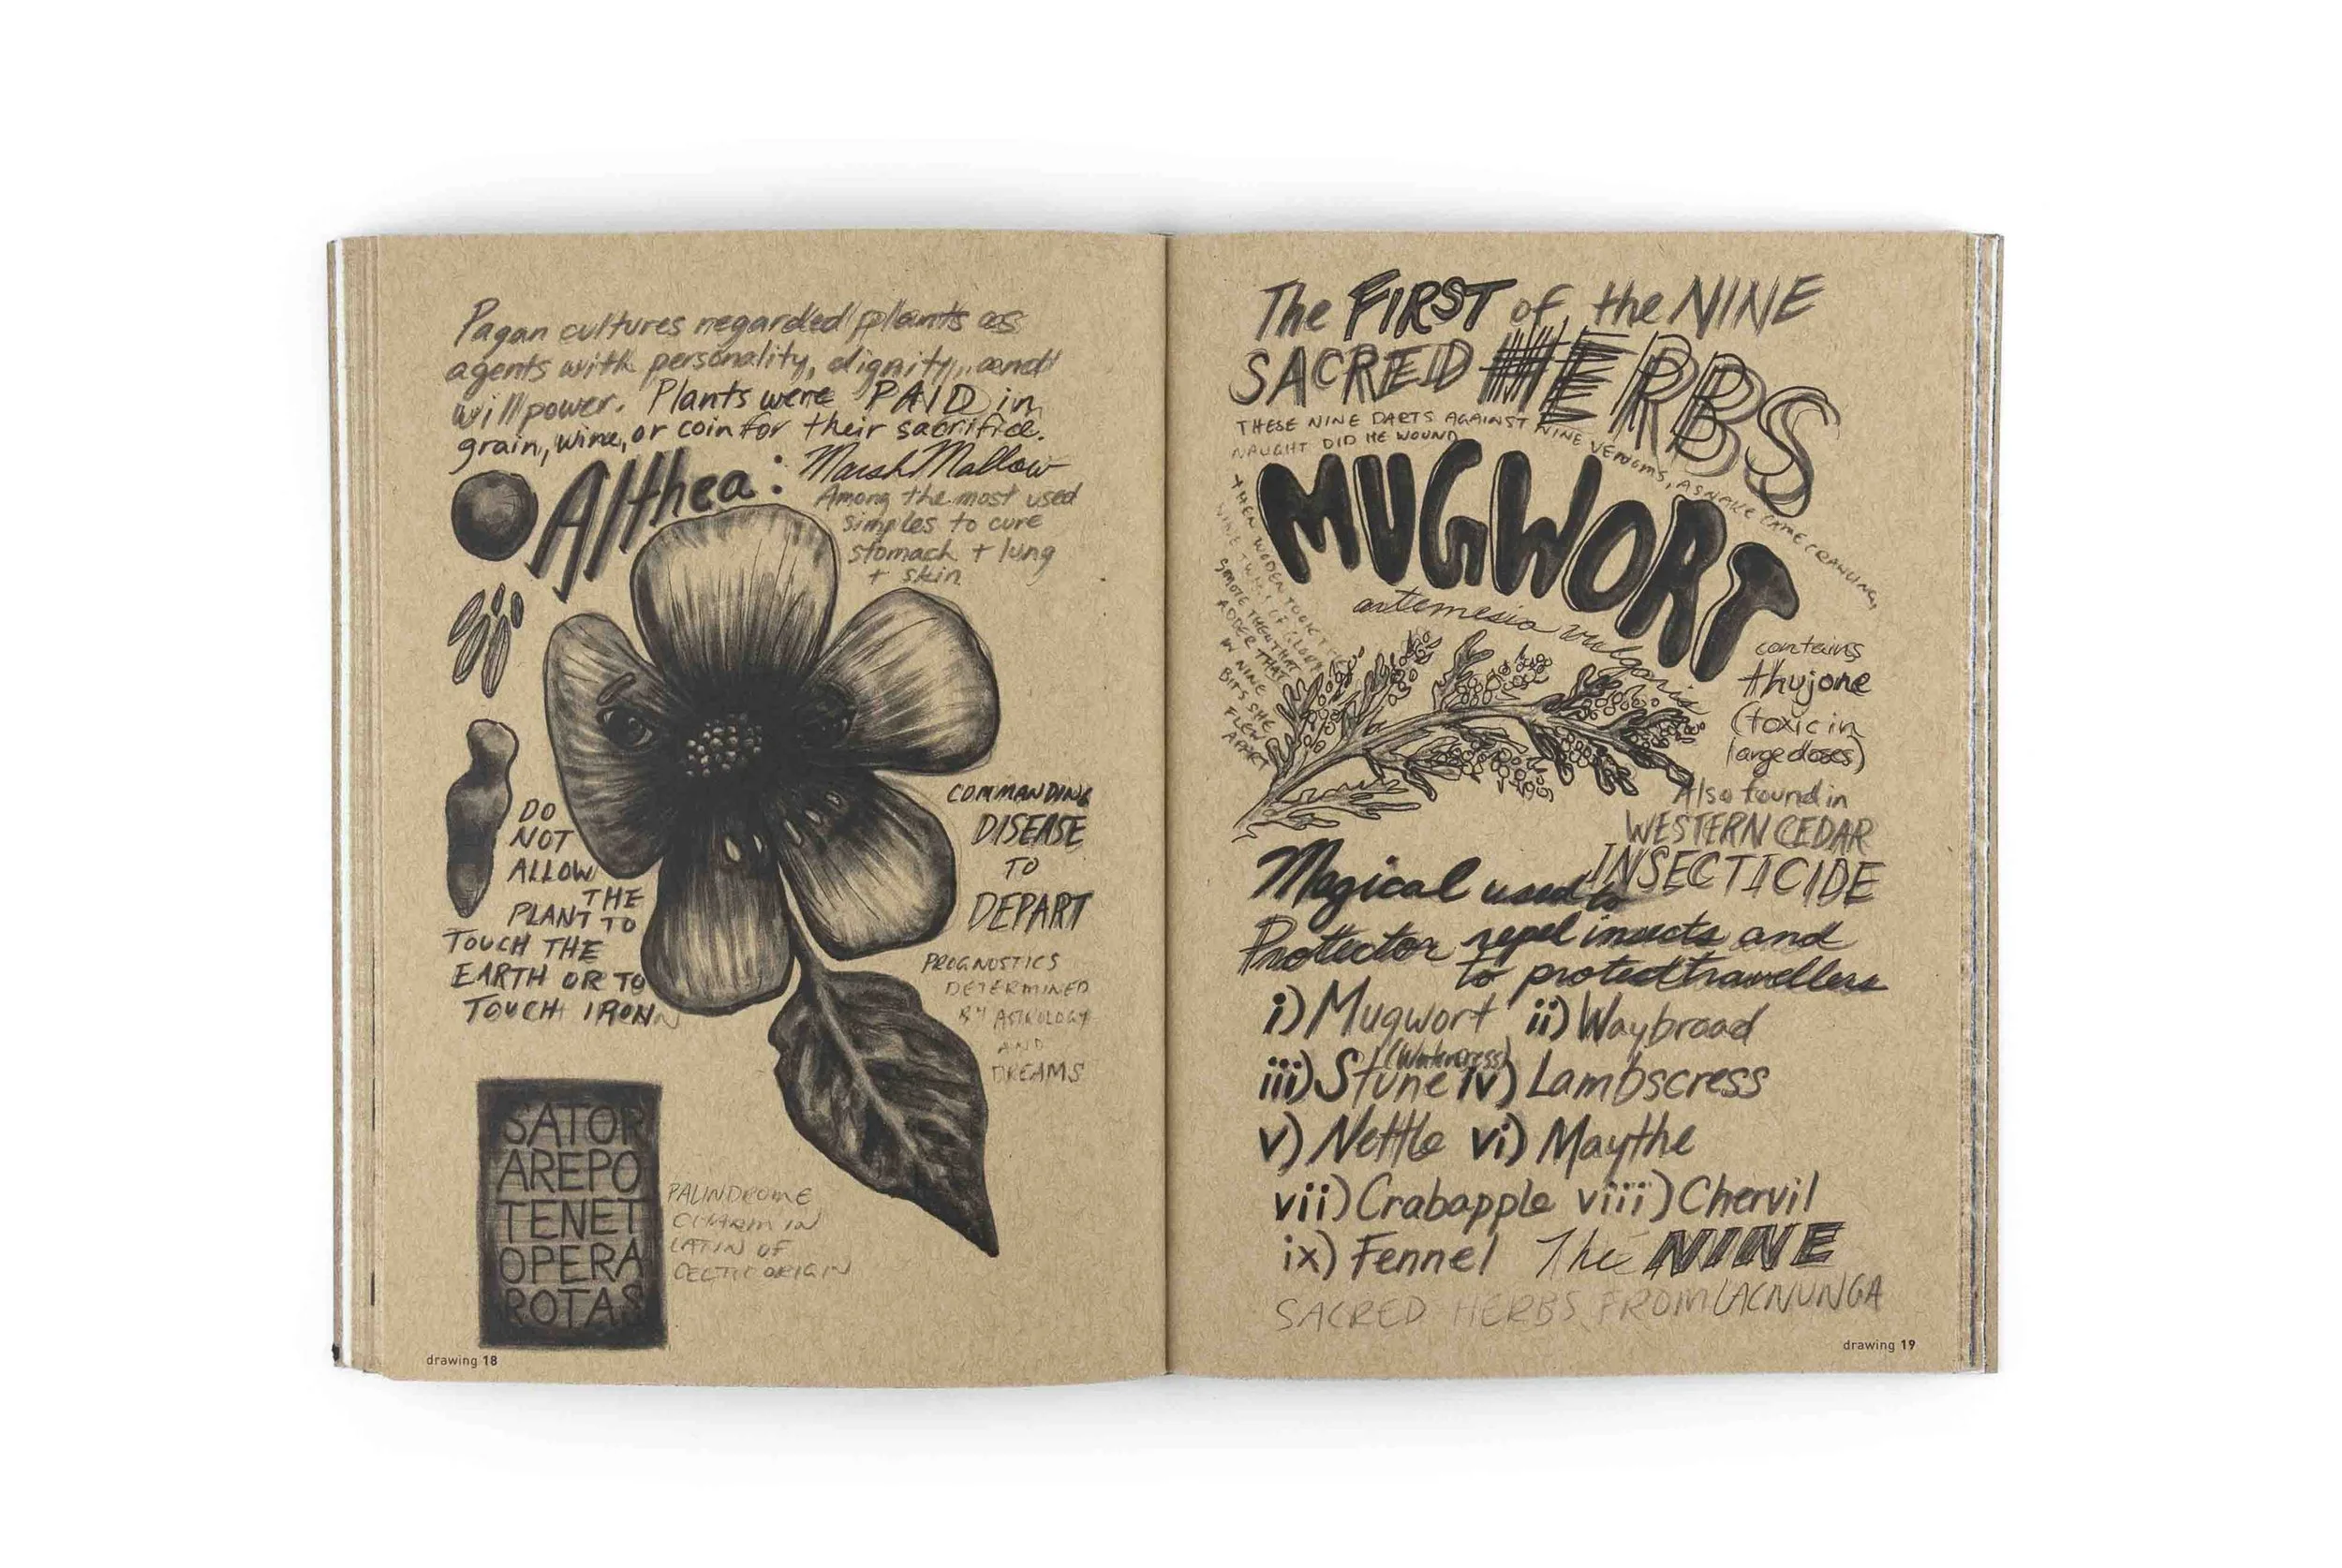 Pagan cultures regarded plants as
agents with personality, dignity, and
willpower. Plants were PAID in
grain, wine, or coin for their sacrifice.
Althea: Marsh Mallow
Among the most used
simples to cure
stomach + lung
+ skin
DO
NOT
ALLOW
THE
PLANT TO
TOUCH THE
EARTH OR TO
TOUCH IRON
COMMANDING
DISEASE
TO
DEPART
PROGNOSTICS
DETERMINED
BY ASTROLOGY
AND
DREAMS
SATOR
AREPO
TENET
OPERA
ROTAS
PALINDROME
CHARM IN
LATIN OF
CELTIC ORIGIN
drawing 18
The FIRST of the NINE
SACRED HERBS
THESE NINE DARTS AGAINST NINE VENOMS, A SNAKE CAME CRAWLING,
NAUGHT DID HE WOUND
THEN WODEN TOOK
NINE TWIGS OF GLORY
SMOTE THEN THAT
ADDER THAT
IN NINE
BITS SHE
FLEW
APART
MUGWORT
artemesia vulgaris
contains
thujone
(toxic in
large doses)
Also found in
WESTERN CEDAR
INSECTICIDE
Magical used to
Protector repel insects and
to protect travellers
i) Mugwort ii) Waybroad
(Watercress)
iii) Stune iv) Lambscress
v) Nettle vi) Maythe
vii) Crabapple viii) Chervil
ix) Fennel The NINE
SACRED HERBS FROM LACNUNGA
drawing 19